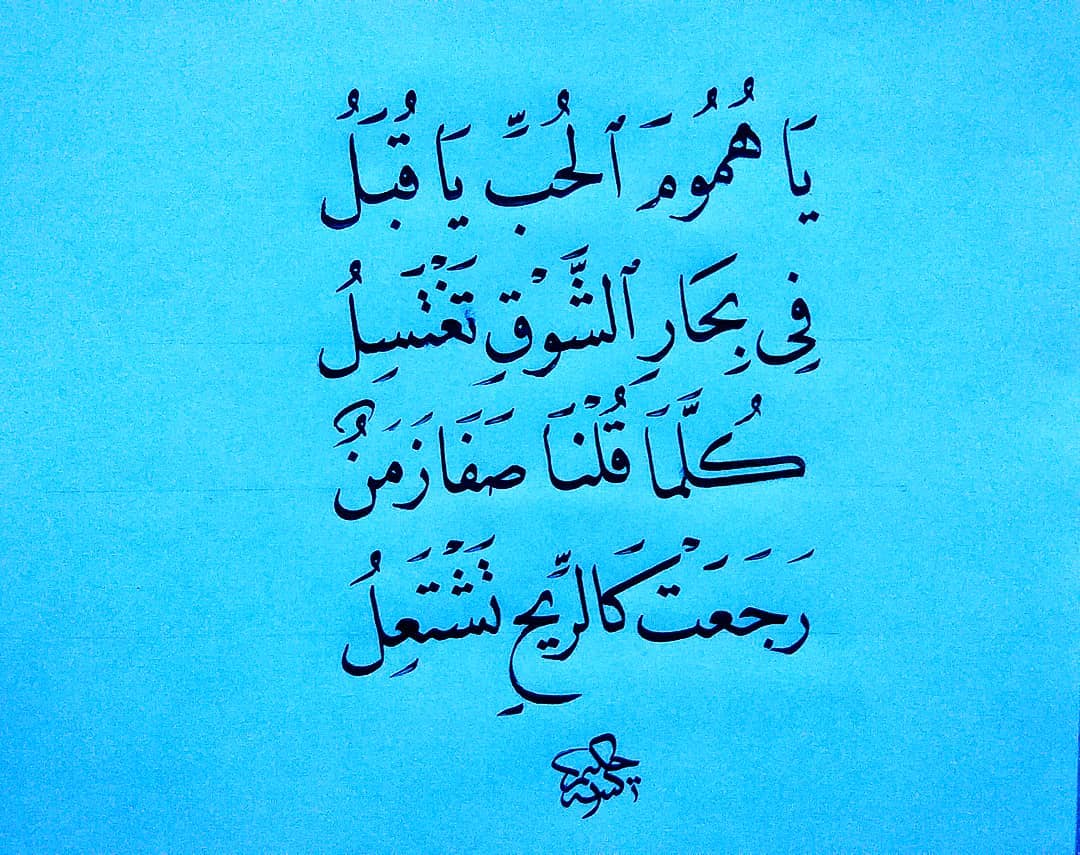 يَا هُمُومَ ٱلْحُبِّ يَا قُبَلُ
فِي بِحَارِ ٱلشَّوْقِ تَغْتَسِلُ
كُلَّمَا قُلْنَا صَفَا زَمَنٌ
رَجَعَتْ كَالرِّيحِ تَشْتَعِلُ